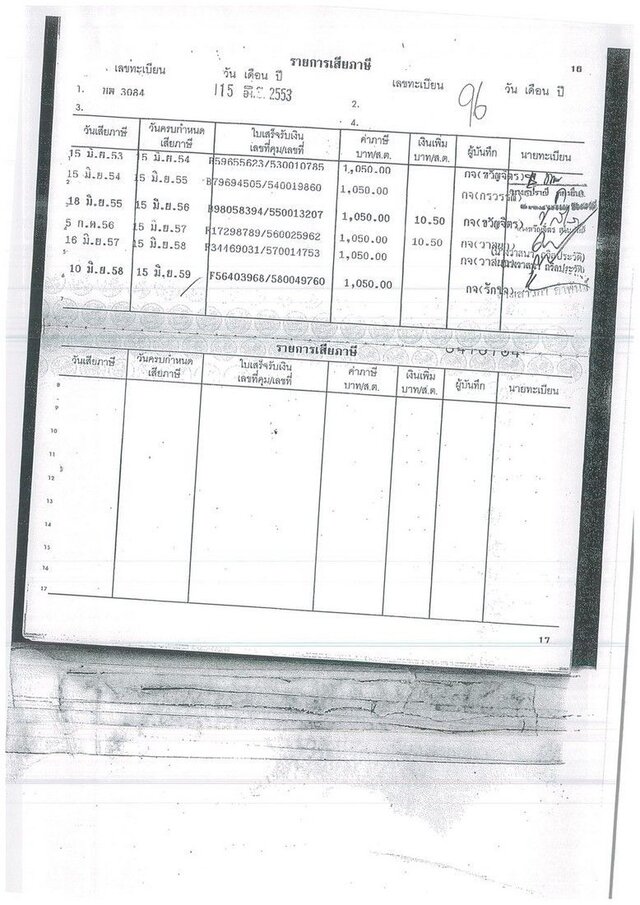 รายการเสียภาษี
16
เลขทะเบียน วัน เดือน ปี เลขทะเบียน วัน เดือน ปี
1. 3084 15 มิ.ย. 2553 2. 96
3. 4.
วันเสียภาษี วันครบกำหนดเสียภาษี ใบเสร็จรับเงิน เลขที่คุม/เลขที่ ค่าภาษี บาท/ส.ต. เงินเพิ่ม บาท/ส.ต. ผู้บันทึก นายทะเบียน
15 มิ.ย.53 15 มิ.ย.54 F59655623/530010785 1,050.00 กจ(ขวัญจิตร)
15 มิ.ย.54 15 มิ.ย.55 B79694505/540019860 1,050.00
18 มิ.ย.55 15 มิ.ย.56 B98058394/550013207 1,050.00 10.50 กจ(ขวัญจิตร)
5 ก.ค.56 15 มิ.ย.57 F17298789/560025962 1,050.00 10.50
16 มิ.ย.57 15 มิ.ย.58 F34469031/570014753 1,050.00
10 มิ.ย.58 15 มิ.ย.59 F56403968/580049760 1,050.00
7
รายการเสียภาษี
วันเสียภาษี วันครบกำหนดเสียภาษี ใบเสร็จรับเงิน เลขที่คุม/เลขที่ ค่าภาษี บาท/ส.ต. เงินเพิ่ม บาท/ส.ต. ผู้บันทึก นายทะเบียน
8
9
10
11
12
13
14
15
16
17
17